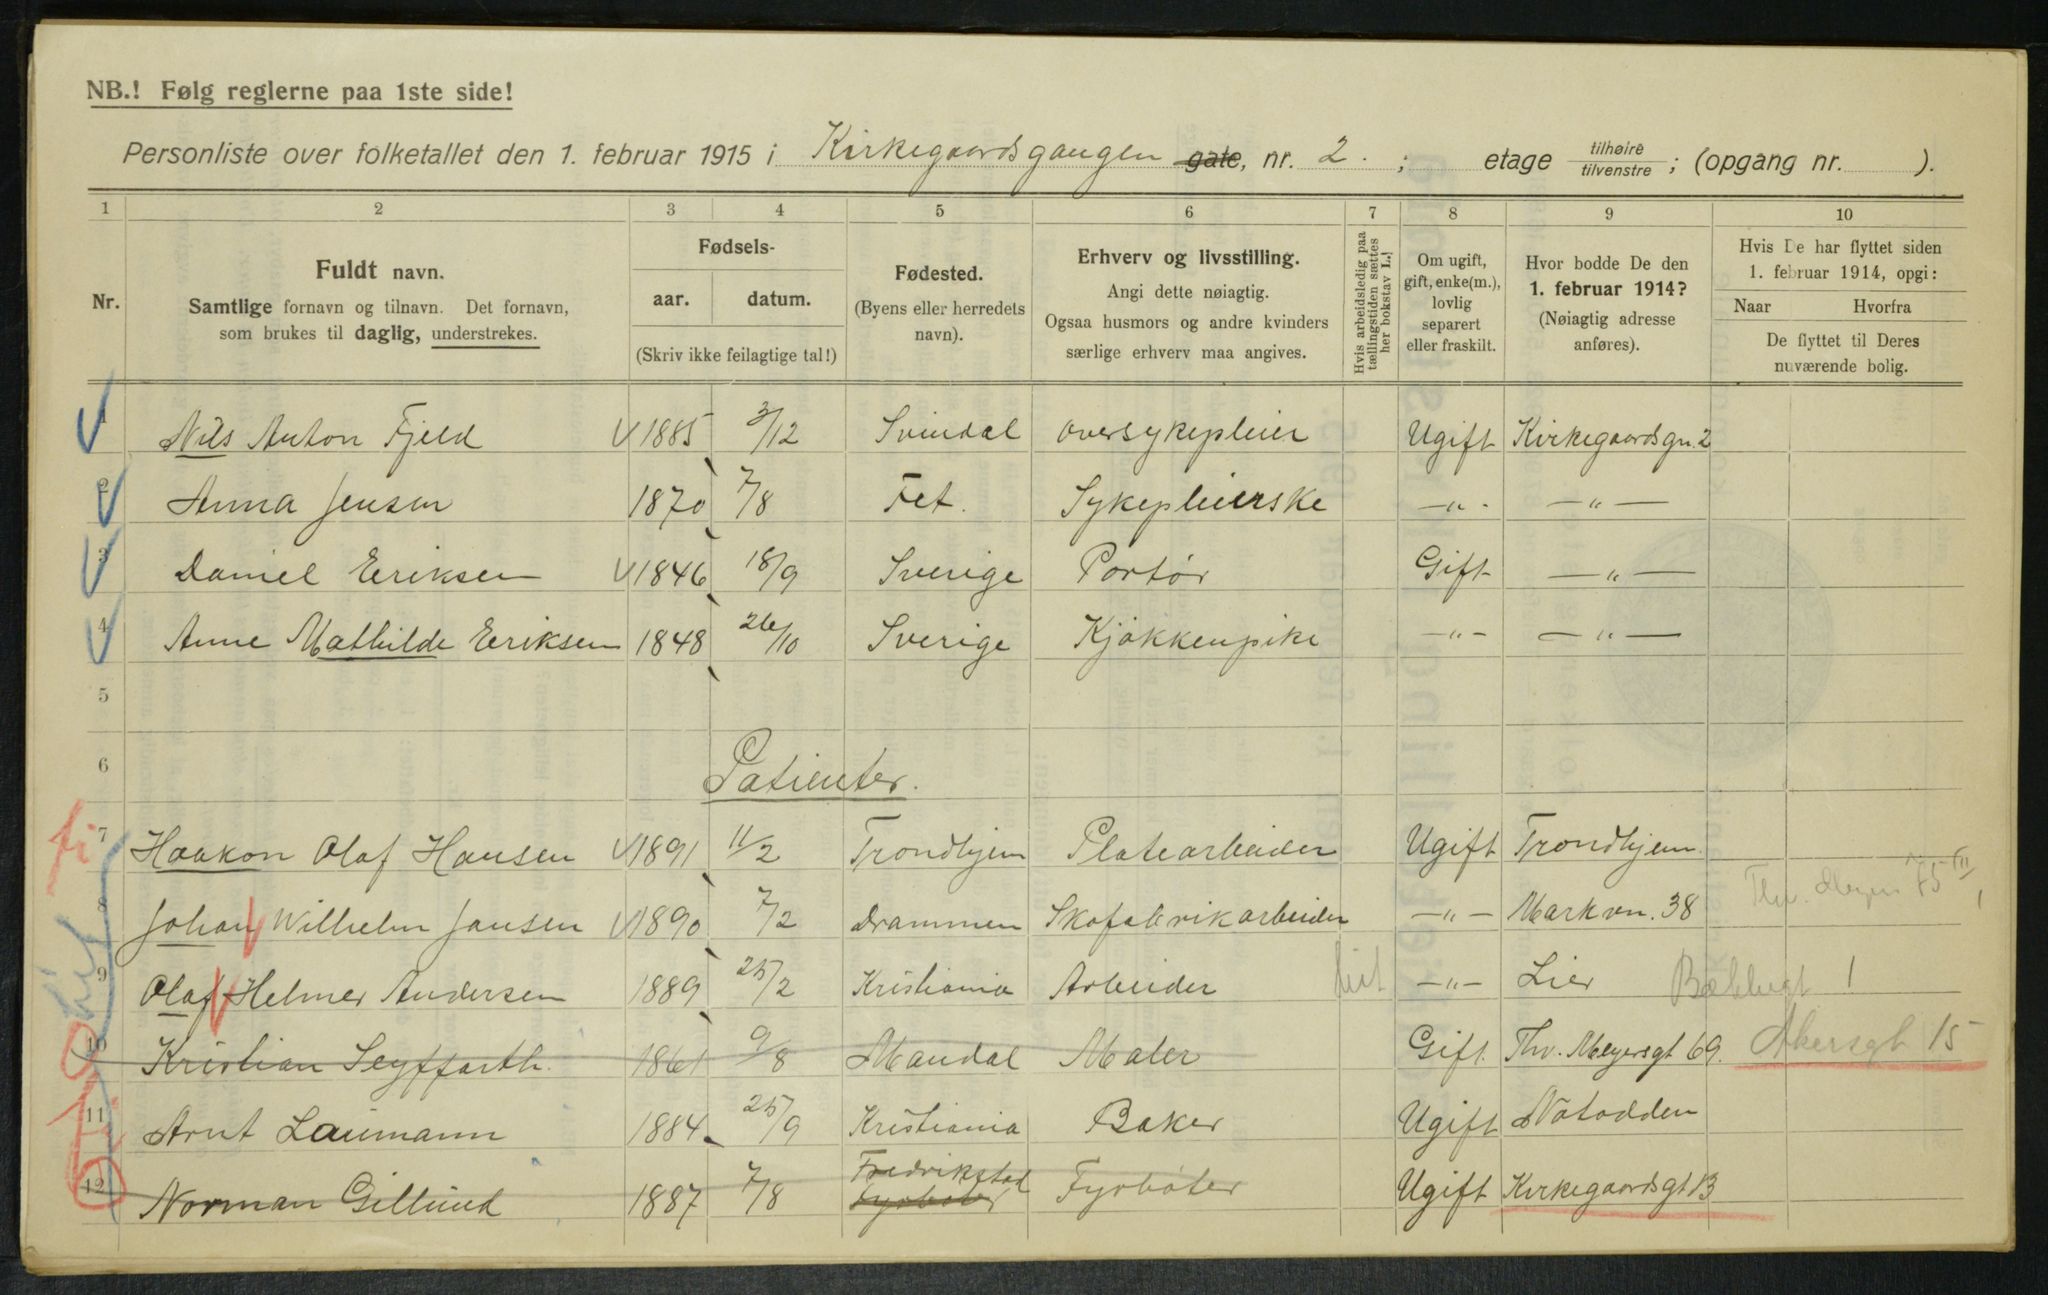 NB.! Følg reglerne paa 1ste side!
Personliste over folketallet den 1. februar 1915 i Kirkegaardsgangen gate, nr. 2. ; etage tilhøire tilvenstre ; (opgang nr. ).
1 2 3 4 5 6 7 8 9 10
Nr.
Fuldt navn.
Samtlige fornavn og tilnavn. Det fornavn,
som brukes til daglig, understrekes.
Fødsels-
aar. datum.
(Skriv ikke feilagtige tal!)
Fødested.
(Byens eller herredets
navn).
Erhverv og livsstilling.
Angi dette nøiagtig.
Ogsaa husmors og andre kvinders
særlige erhverv maa angives.
Hvis arbeidsledig paa
tællingstiden sættes
her bokstav L.
Om ugift,
gift, enke(m.),
lovlig
separert
eller fraskilt.
Hvor bodde De den
1. februar 1914?
(Nøiagtig adresse
anføres).
Hvis De har flyttet siden
1. februar 1914, opgi:
Naar Hvorfra
De flyttet til Deres
nuværende bolig.
1 Nils Anton Fjeld 1885 3/12 Svindal oversykepleier Ugift Kirkegaardsgn. 2
2 Anna Jensen 1870 7/8 Fet. Sykepleierske —„- —„—
3 Daniel Eriksen 1846 18/9 Sverige Portør Gift —„—
4 Anne Mathilde Eriksen 1848 26/10 Sverige Kjøkkenpike —„— —„—
5
6 Patienter.
7 Haakon Olaf Hansen 1891 11/2 Trondhjem Platearbeider Ugift Trondhjem.
8 Johan Wilhelm Jansen 1890 7/2 Drammen Skofabrikarbeider —„— Markvn. 38 Thv. Meyers 75 III
9 Olaf Helmer Andersen 1889 25/2 Kristiania Arbeider —„— Lier 1
10 Kristian Seyffarth. 1861 9/8 Mandal Maler Gift Thv. Meyersgt 69. Akersgt 15
11 Arnt Laumann 1884 25/9 Kristiania Baker Ugift Notodden
12 Norman Gillund 1887 7/8 Fredrikstad Fyrbøter Fyrbøter Ugift Kirkegaardsgt 13